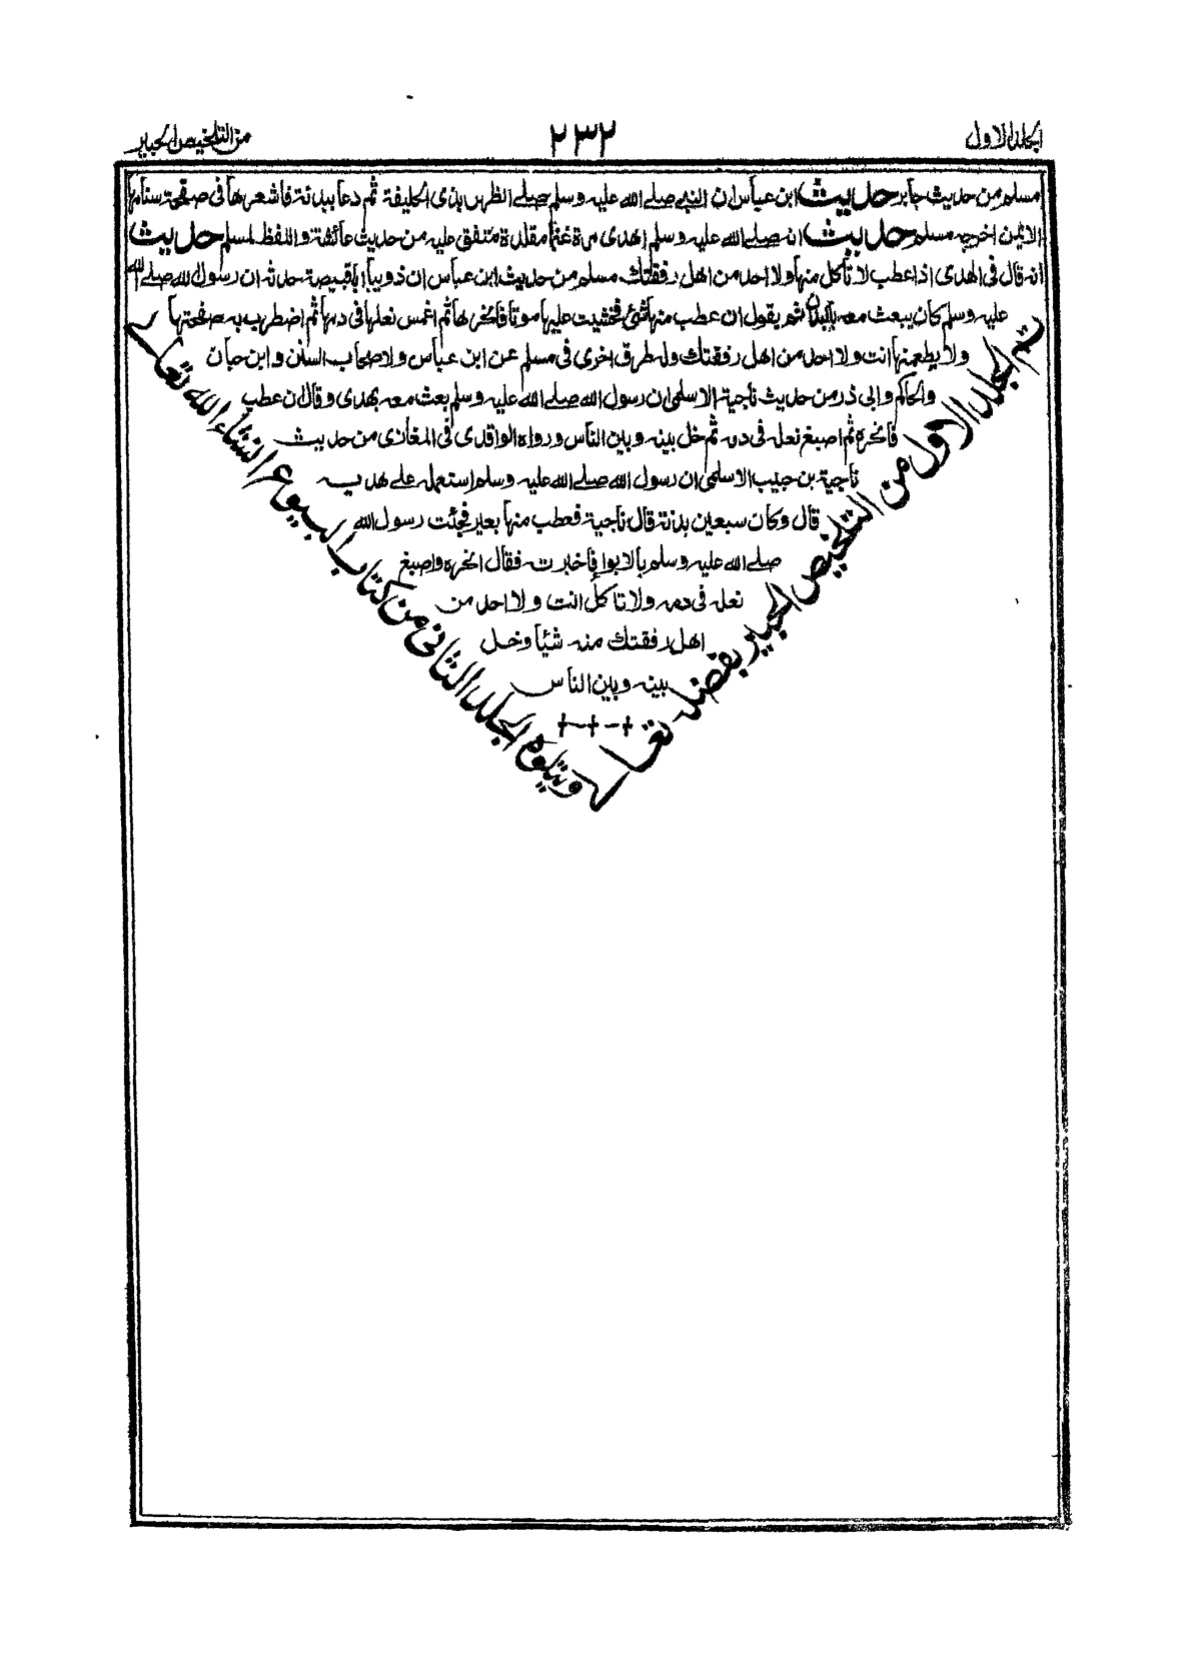 الجلد الاول
٢٣٢
من التلخيص الحبير
مسلم من حديث جابر حديث ابن عباس ان النبى صلے الله عليه وسلم صلے الظهر بذى الحليفة ثم دعا ببدنة فاشعرها فى صفحة سنامها
الايمن اخرجه مسلم حديث انه صلے الله عليه وسلم اهدى مرة غنما مقلدة متفق عليه من حديث عائشة واللفظ لمسلم حديث
انه قال فى الهدى اذا عطب لا تأكل منها ولا احد من اهل رفقتك مسلم من حديث ابن عباس ان ذويبا ابا قبيصة حدثه ان رسول الله صلے الله
عليه وسلم كان يبعث معه بالبدن ثم يقول ان عطب منها شئ فخشيت عليها موتا فانحرها ثم اغمس نعلها فى دمها ثم اضطرب به صفحتها
ولا يطعمنها انت ولا احد من اهل رفقتك وله طرق اخرى فى مسلم عن ابن عباس ولاصحاب السنن وابن حبان
والحاكم وابى ذر من حديث ناجية الاسلمى ان رسول الله صلے الله عليه وسلم بعث معه بهدى وقال ان عطب
فانحره ثم اصبغ نعله فى دمه ثم خل بينه وبين الناس ورواه الواقدى فى المغازى من حديث
ناجية بن جبيب الاسلمى ان رسول الله صلے الله عليه وسلم استعمله على هديه
قال وكان سبعين بدنة قال ناجية فعطب منها بعير فجئت رسول الله
صلے الله عليه وسلم بالابوا فاخبرته فقال انحره واصبغ
نعله فى دمه ولا تاكل انت ولا احد من
اهل رفقتك منه شيأ وخل
بينه وبين الناس
تم الجلد الاول من التلخيص الحبير بفضله تعالے
ويتلوه الجلد الثانى من كتاب البيوع انشاء الله تعالے